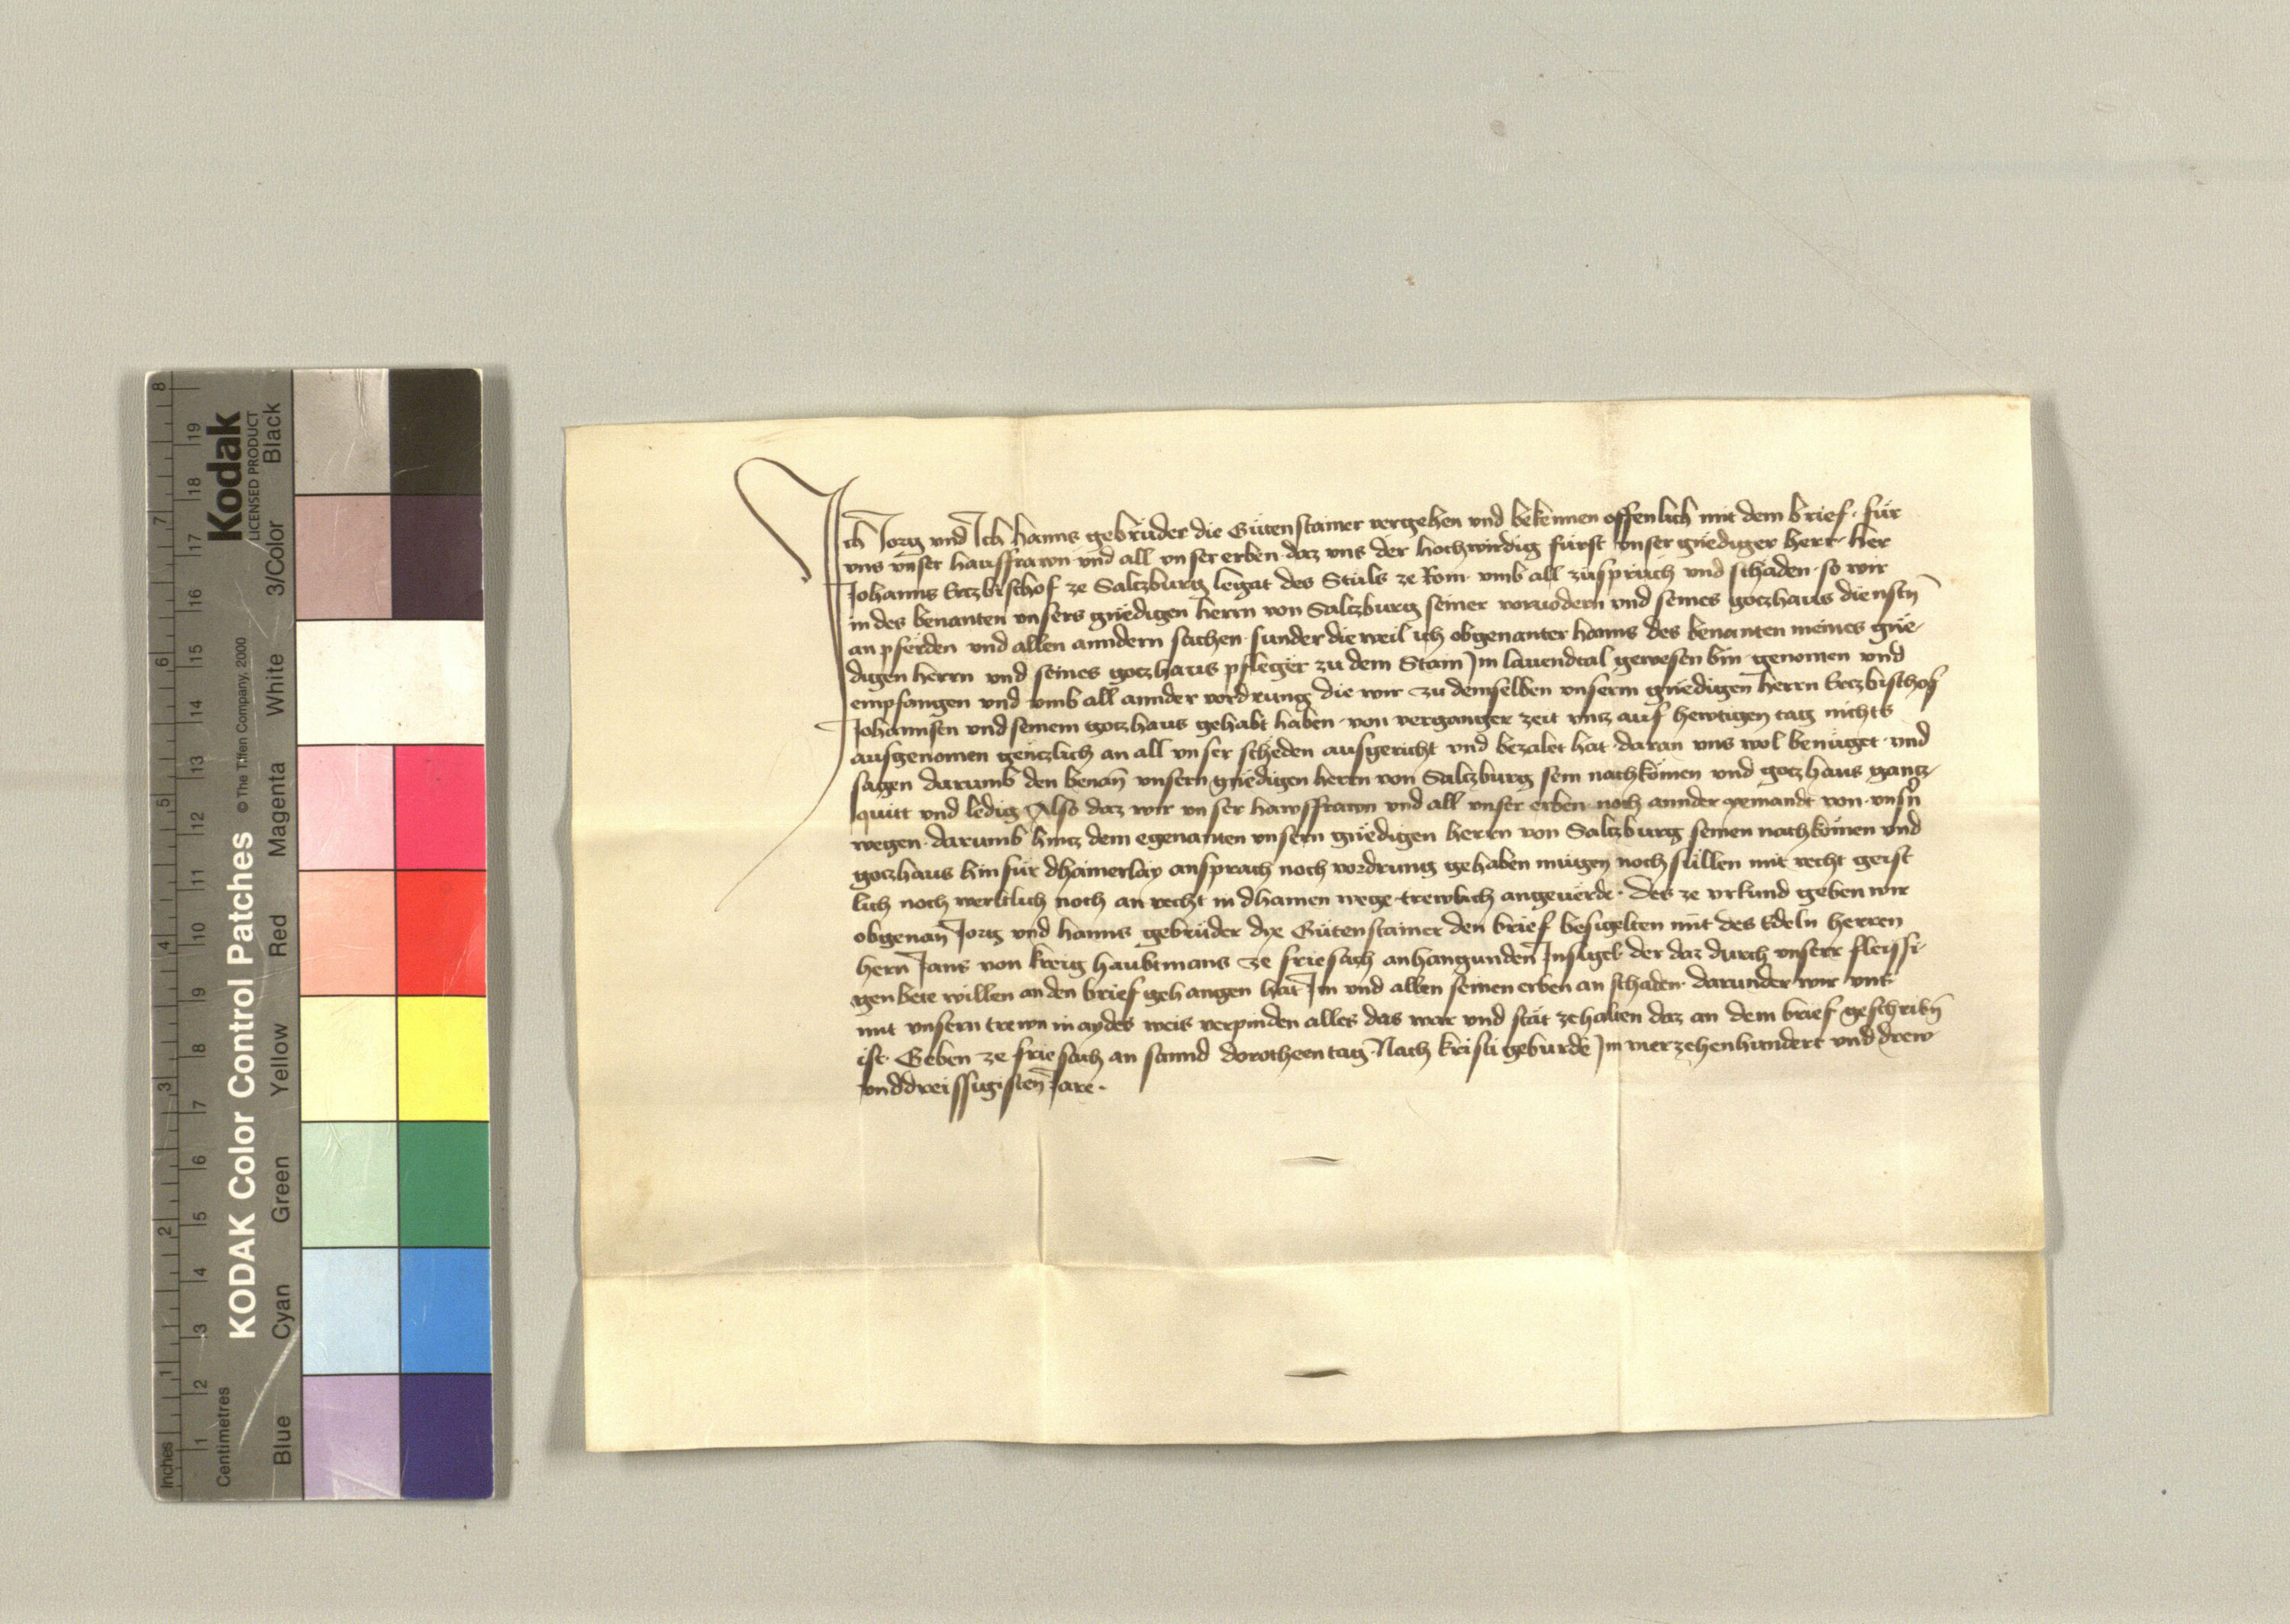 Ich Jorg und Ich Hanns gebrüder die Gütenstainer vergehen und bekennen offenlich mit dem brief · für
uns unser hausfrawn und all unser erben · daz uns der hochwirdig fürst unser gnediger herr · her
Johanns Ertzbischof ze Saltzburg legat des Stuls ze Rom · umb all zuspruch und schäden · so wir
in des benanten unsers gnedigen herrn von Saltzburg seiner vorvodern und seines gotzhaus dienstn̄
an pferden und allen anndern sachen · sunder die weil ich obgenanter hanns des benanten meines gne-
digen herrn und seines gotzhaus pfleger zu dem Stain Im lauendtal gewesen bin · genomen und
empfangen und umb all annder vordrung die wir zu demselben unserm gnedigen herrn Ertzbischof
Johannsen und seinem gotzhaus gehabt haben · von verganger zeit untz auf hewtigen tag nichts
ausgenomen gentzlich an all unser scheden ausgericht und bezalet hat · daran uns wol benüget · und
sagen darumb den benan̄ unsern gnedigen herrn von Saltzburg sein nachkomen und gotzhaus gantz
quitt und ledig Also daz wir unser hawsfrawn und all unser erben noch annder yemandt von · unsn̄
wegen · darumb hintz dem egenanten unsern gnedigen herrn von Saltzburg seinen nachkömen und
gotzhaus hinfür dhainerlay ansprach noch vordrung gehaben mügen noch süllen mit recht geist
lich noch werltlich noch an recht in dhainen wege · trewlich angeuerde · des ze urkund geben wir
obgenan̄ Jorg und hanns gebrüder dye Gütenstainer den brief besigelten mit des Edeln herren
hern Jans von kreig haubtmans ze friesach anhangunden Insigel · der daz durch unserr fleissi-
gen bete willen an den brief gehangen hat Im und allen seinen erben an schaden · darunder wir uns
mit unsern trewn in aydes weis verpinden alles das war und stät zehalten daz an dem brief geschribn̄
ist · Geben ze friesach an sannd dorotheen tag · Nach kristi geburde Im vierzehenhundert und drew
unddreissigisten Jare ·
Kodak
LICENSED PRODUCT
KODAK Color Control Patches © The Tiffen Company, 2000
Blue Cyan Green Yellow Red Magenta White 3/Color Black
Inches 1 2 3 4 5 6 7 8
Centimetres 1 2 3 4 5 6 7 8 9 10 11 12 13 14 15 16 17 18 19